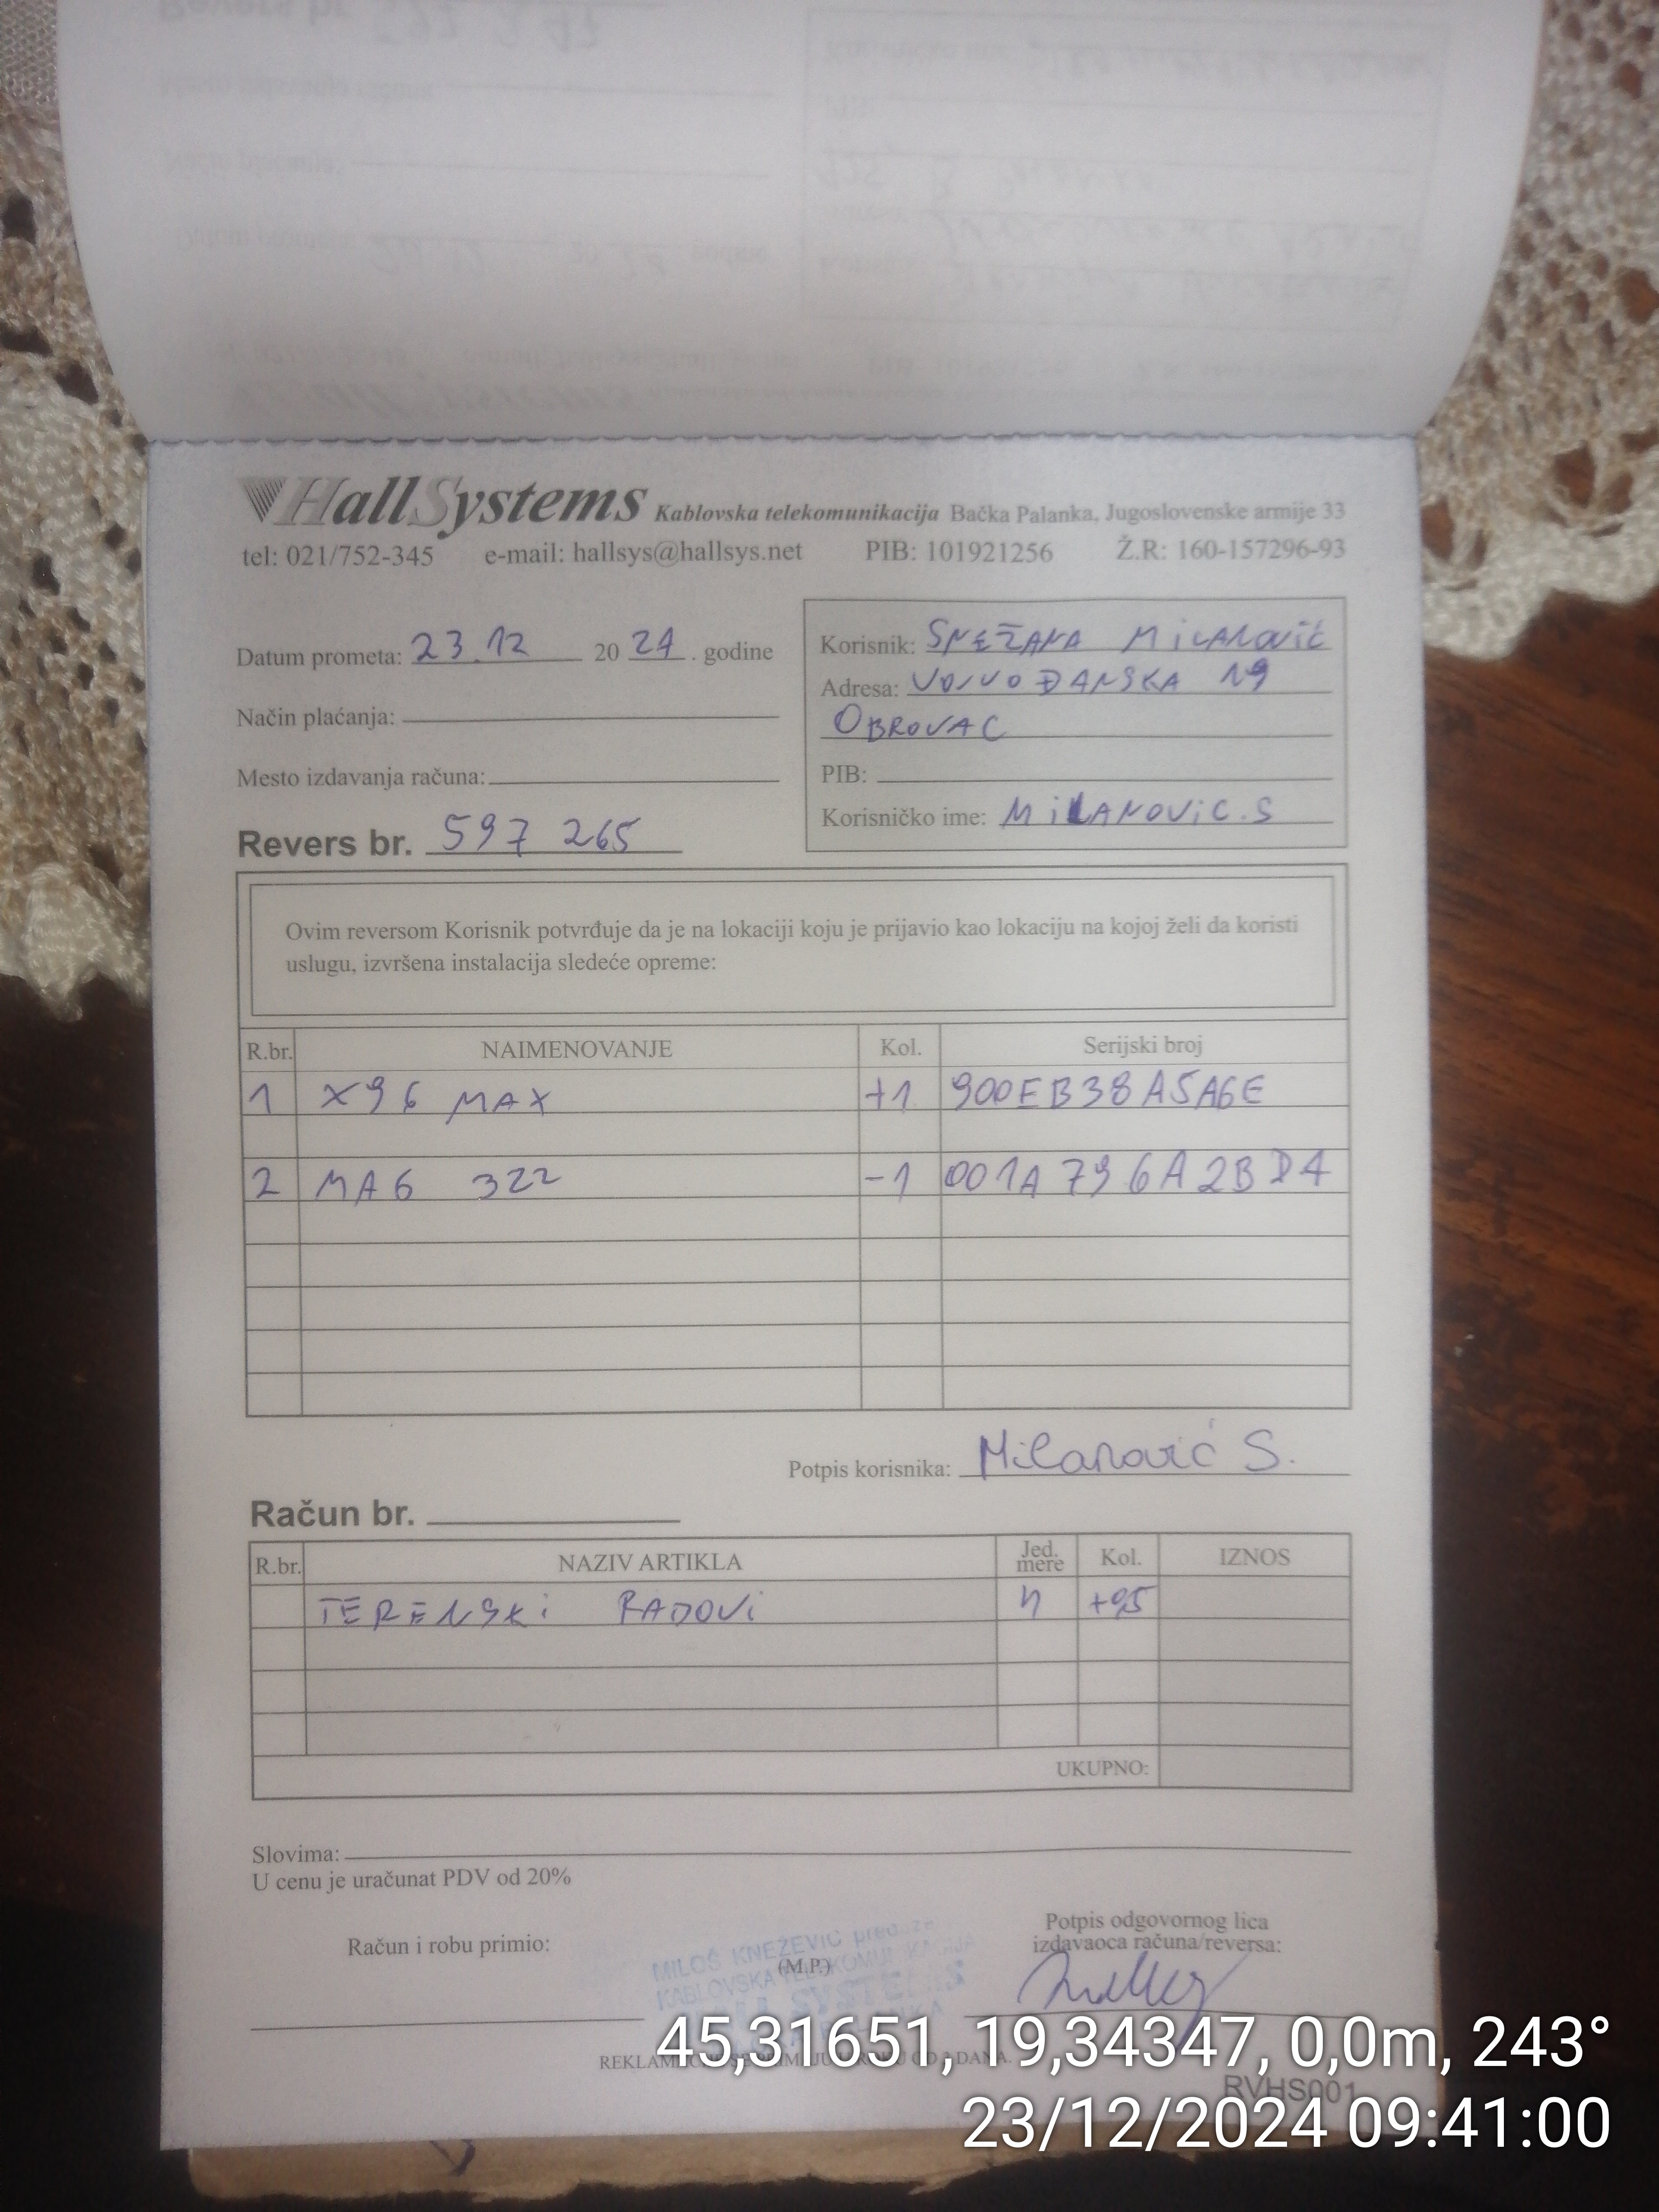 HallSystems Kablovska telekomunikacija Bačka Palanka, Jugoslovenske armije 33
tel: 021/752-345 e-mail: hallsys@hallsys.net PIB: 101921256 Ž.R: 160-157296-93
Datum prometa: 23.12 20 24. godine
Način plaćanja:
Mesto izdavanja računa:
Revers br. 597 265
Korisnik: SNEŽANA MILANOVIĆ
Adresa: VOJVOĐANSKA 19
OBROVAC
PIB:
Korisničko ime: MILANOVIC.S
Ovim reversom Korisnik potvrđuje da je na lokaciji koju je prijavio kao lokaciju na kojoj želi da koristi
uslugu, izvršena instalacija sledeće opreme:
R.br. NAIMENOVANJE Kol. Serijski broj
1 X96 MAX +1 900EB38A5A6E
2 MAG 322 -1 001A796A2BD4
Potpis korisnika: Milanović S.
Račun br.
R.br. NAZIV ARTIKLA Jed. mere Kol. IZNOS
TERENSKI RADOVI h +0,5
UKUPNO:
Slovima:
U cenu je uračunat PDV od 20%
Račun i robu primio:
(M.P.)
Potpis odgovornog lica
izdavaoca računa/reversa:
MILOŠ KNEŽEVIĆ
KABLOVSKA TELEKOMUNIKACIJA
SYSTEMS
45,31651, 19,34347, 0,0m, 243°
RVHS001
23/12/2024 09:41:00